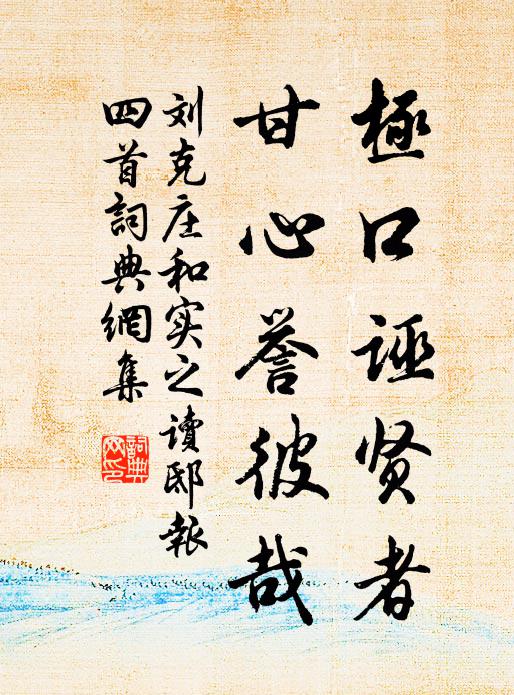 極口誣贤者
甘心誉彼哉
刘克庄和实之读邸報
四首詞典網集
詞典网印